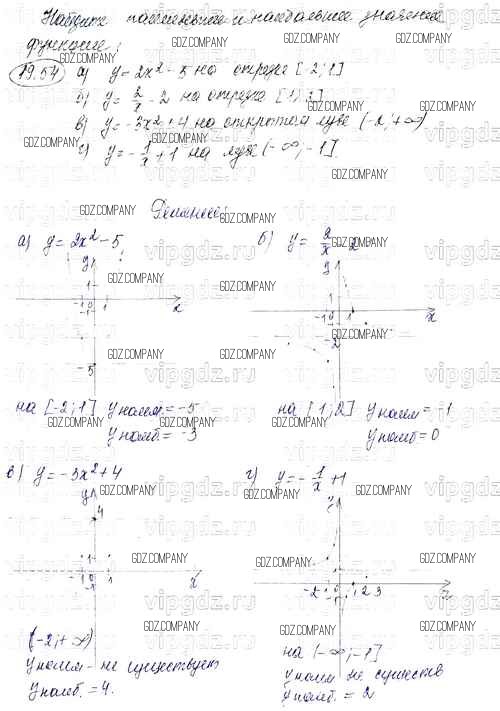 Найдите наименьшее и наибольшее значение
функции:
19.54 а) y = 2x² - 5 на отрезке [-2; 1]
б) y = 2/x - 2 на отрезке [1; 2]
в) y = -3x² + 4 на открытом луче (-2; +∞)
г) y = -1/x + 1 на луче (-∞; -1].
Решение:
а) y = 2x² - 5
y
1
-1 0 1 x
-1
-5
на [-2; 1] y наим = -5
y наиб. = -3
б) y = 2/x - 2
y
1
-1 0 1 x
-1
-2
на [1; 2] y наим = -1
y наиб = 0
в) y = -3x² + 4
y
4
1
-1 1 x
(-2; +∞)
y наим - не существует
y наиб. = 4.
г) y = -1/x + 1
y
-2 -1 0 1 2 3 x
на (-∞; -1]
y наим не существ
y наиб. = 2
GDZ.COMPANY
vipgdz.ru